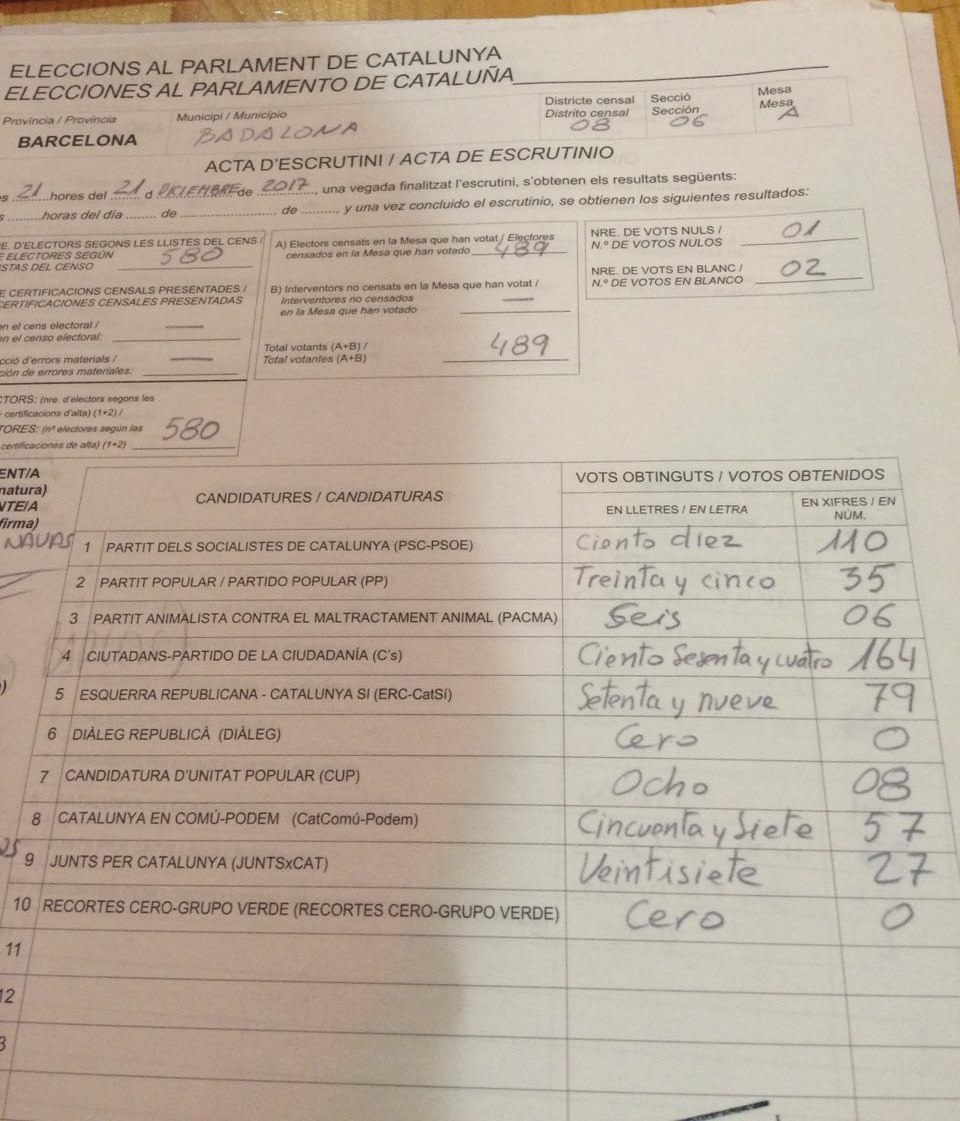 ELECCIONS AL PARLAMENT DE CATALUNYA
ELECCIONES AL PARLAMENTO DE CATALUÑA
Província / Provincia
BARCELONA
Municipi / Municipio
BADALONA
Districte censal
Distrito censal
08
Secció
Sección
06
Mesa
Mesa
A
ACTA D'ESCRUTINI / ACTA DE ESCRUTINIO
21 hores del 21 d DICIEMBRE de 2017, una vegada finalitzat l'escrutini, s'obtenen els resultats següents:
horas del día ........ de ........................ de ........., y una vez concluido el escrutinio, se obtienen los siguientes resultados:
E. D'ELECTORS SEGONS LES LLISTES DEL CENS /
E ELECTORES SEGÚN
ISTAS DEL CENSO 580
E CERTIFICACIONS CENSALS PRESENTADES /
CERTIFICACIONES CENSALES PRESENTADAS
en el cens electoral /
en el censo electoral: —
cció d'errors materials /
ción de errores materiales: —
CTORS: (nre. d'electors segons les
certificacions d'alta) (1+2) /
TORES: (nº electores según las
certificaciones de alta) (1+2) 580
A) Electors censats en la Mesa que han votat / Electores
censados en la Mesa que han votado 489
B) Interventors no censats en la Mesa que han votat /
Interventores no censados
en la Mesa que han votado —
Total votants (A+B) /
Total votantes (A+B) 489
NRE. DE VOTS NULS /
N.º DE VOTOS NULOS 01
NRE. DE VOTS EN BLANC /
N.º DE VOTOS EN BLANCO 02
ENT/A
natura)
NTE/A
firma)
NAVAS
CANDIDATURES / CANDIDATURAS
VOTS OBTINGUTS / VOTOS OBTENIDOS
EN LLETRES / EN LETRA
EN XIFRES / EN
NÚM.
1 PARTIT DELS SOCIALISTES DE CATALUNYA (PSC-PSOE) Ciento diez 110
2 PARTIT POPULAR / PARTIDO POPULAR (PP) Treinta y cinco 35
3 PARTIT ANIMALISTA CONTRA EL MALTRACTAMENT ANIMAL (PACMA) Seis 06
4 CIUTADANS-PARTIDO DE LA CIUDADANÍA (C's) Ciento Sesenta y cuatro 164
5 ESQUERRA REPUBLICANA - CATALUNYA SI (ERC-CatSí) Setenta y nueve 79
6 DIÀLEG REPUBLICÀ (DIÀLEG) Cero 0
7 CANDIDATURA D'UNITAT POPULAR (CUP) Ocho 08
8 CATALUNYA EN COMÚ-PODEM (CatComú-Podem) Cincuenta y Siete 57
9 JUNTS PER CATALUNYA (JUNTSxCAT) Veintisiete 27
10 RECORTES CERO-GRUPO VERDE (RECORTES CERO-GRUPO VERDE) Cero 0
11
12
3